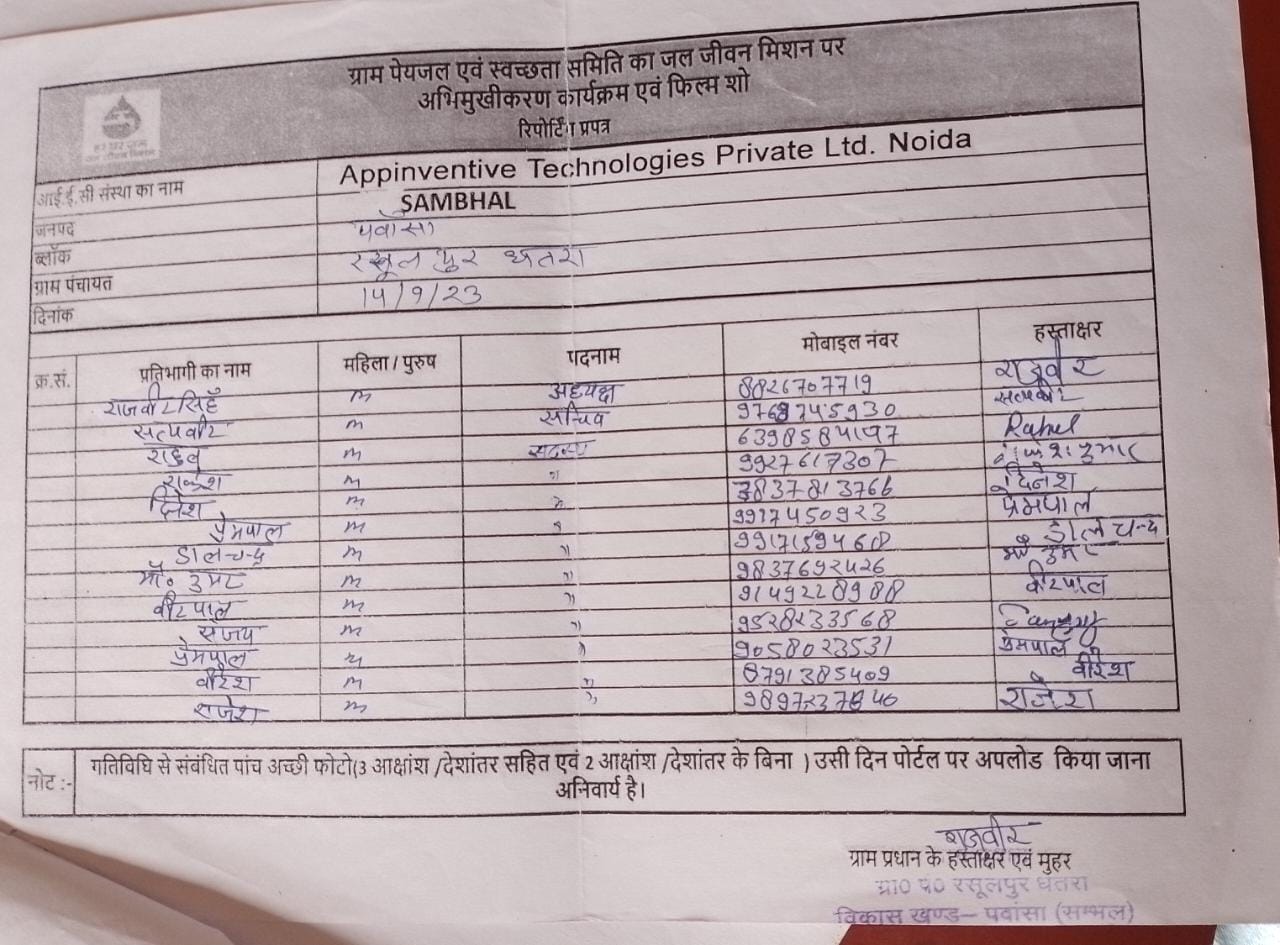 ग्राम पेयजल एवं स्वच्छता समिति का जल जीवन मिशन पर
अभिमुखीकरण कार्यक्रम एवं फिल्म शो
रिपोर्टिंग प्रपत्र
हर घर जल
जल जीवन मिशन
आई.ई.सी संस्था का नाम Appinventive Technologies Private Ltd. Noida
जनपद SAMBHAL
ब्लॉक पवाँसा
ग्राम पंचायत रसूलपुर धतरा
दिनांक 14/9/23
क्र.सं. प्रतिभागी का नाम महिला / पुरुष पदनाम मोबाइल नंबर हस्ताक्षर
राजवीर सिहँ m अध्यक्ष 8826707719 राजवीर
सत्यवीर m सचिव 9769745930 सत्यवीर
राहुल m सदस्य 6398584197 Rahul
राकेश m " 9927617307 कुमार
दिनेश m " 3837813766 दिनेश
प्रेमपाल m " 9917450923 प्रेमपाल
डालचन्द्र m " 9917159468 डालचन्द
मौ० उमर m " 9837692426 मौ० उमर
वीरपाल m " 9149228988 वीरपाल
संजय m " 9528233568
प्रेमपाल m " 9058023531 प्रेमपाल
वीरेश m " 8791385409 वीरेश
राजेश m " राजेश
नोट :- गतिविधि से संबंधित पांच अच्छी फोटो(3 आक्षांश /देशांतर सहित एवं 2 आक्षांश /देशांतर के बिना ) उसी दिन पोर्टल पर अपलोड किया जाना
अनिवार्य है।
राजवीर
ग्राम प्रधान के हस्ताक्षर एवं मुहर
ग्रा0 पं0 रसूलपुर धतरा
विकास खण्ड– पवांसा (सम्भल)